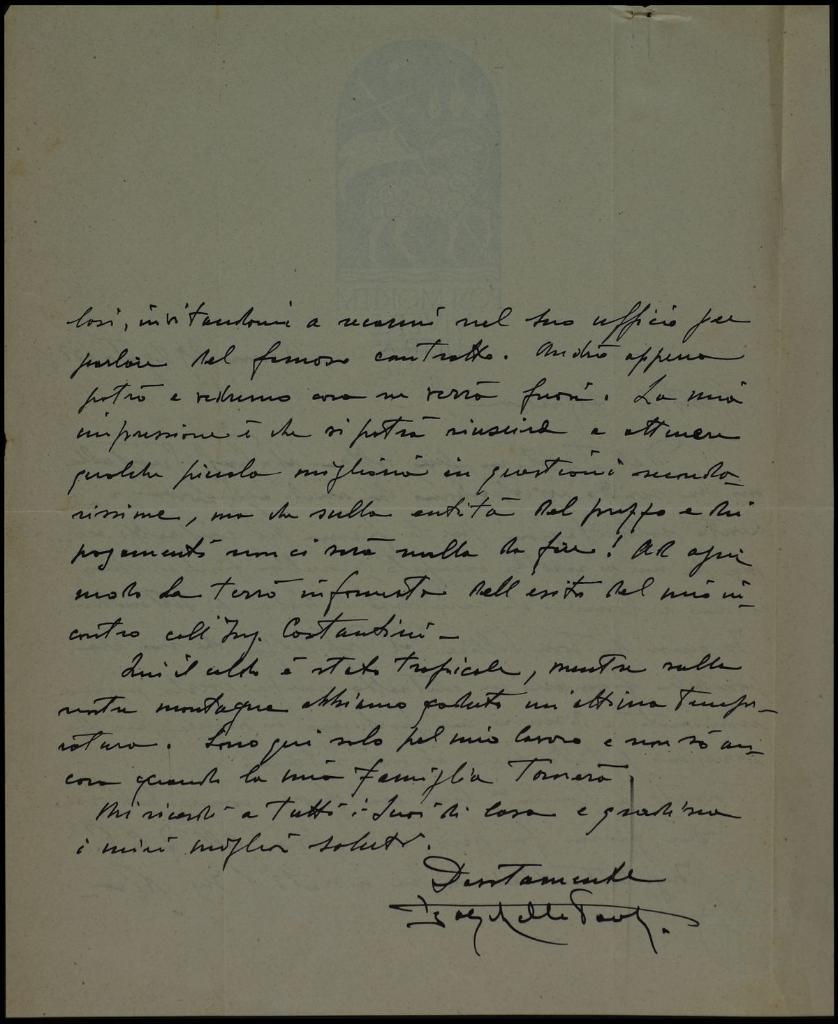 losi, invitandomi a recarmi nel suo ufficio per
parlare del famoso contratto. Andrò appena
potrò e vedremo cosa ne verrà fuori. La mia
impressione è che si potrà riuscire a ottenere
qualche piccola miglioria in questioni seconda-
rissime, ma che sulla entità del prezzo e dei
pagamenti non ci sarà nulla da fare! Ad ogni
modo La terrò informata dell'esito del mio in-
contro coll'Ing. Costantini -
Qui il caldo è stato tropicale, mentre sulle
nostre montagne abbiamo goduto un'ottima tempe-
ratura. Sono qui solo pel mio lavoro e non so an-
cora quando la mia famiglia tornerà.
Mi ricordi a tutti i Suoi di casa e gradisca
i miei migliori saluti.
Devotamente